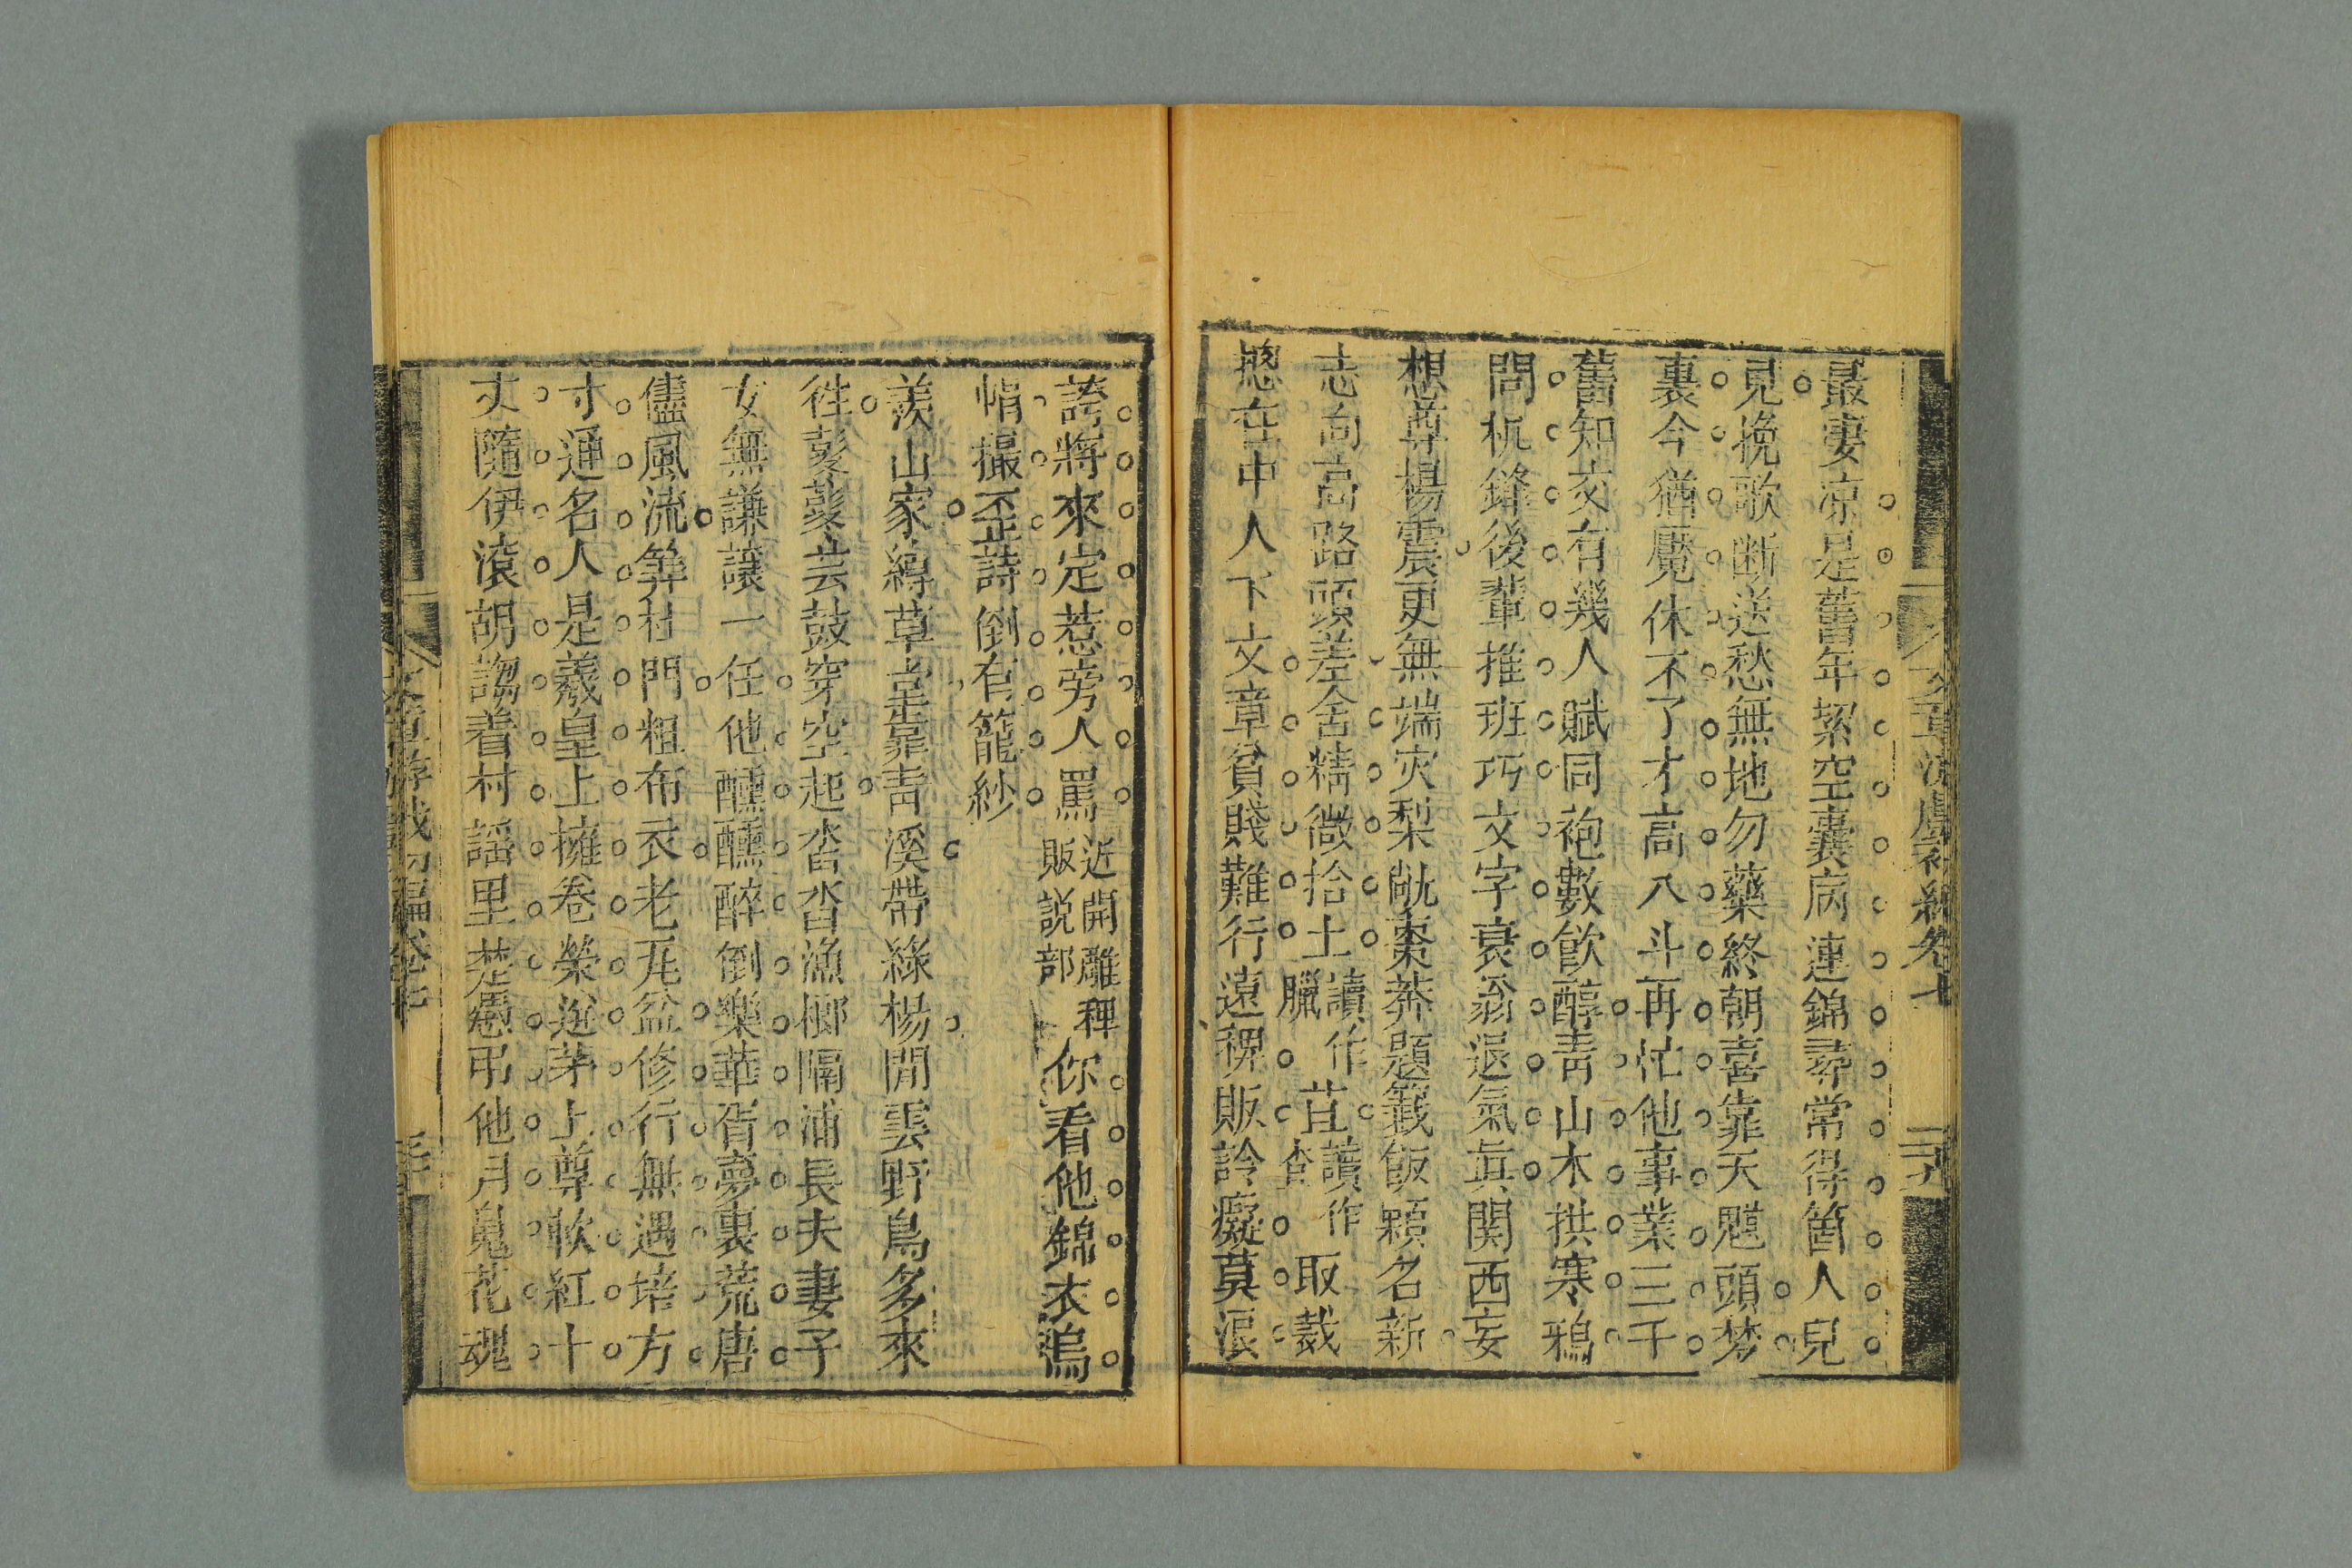 最妻凉是舊年絜空囊病連錦尋常得箇人兒
見挽歌断送愁無地勿藥終朝喜靠天魁頭梦
裏今猶魘休不了才高八斗再忙他事業三千
舊知交有幾人賦同袍數飲醇青山木拱寒鴉
問机鋒後輩推班巧文字衰翁退氣眞関西妄
想尊楊震更無端灾梨敝棗莽題籤飯顆名新
志向高路頭差舍精微拾土讀作臘苴讀作查取裁
揔在中人下文章貧賤難行遠稗販訡癡莫浪
誇將來定惹旁人罵近開雕稗販説部你看他錦衣鴆
㡓撮歪詩倒有籠紗
羨山家縛草堂靠青溪帶綠楊閒雲野鳥多來
徃彭彭芸鼓穿空起沓沓漁榔隔浦長夫妻子
女無謙讓一任他醺醺醉倒樂華胥夢裏荒唐
儘風流筭杜門粗布衣老瓦盆修行無遇培方
寸通名人是羲皇上擁卷榮逾茅土尊軟紅十
丈隨伊滾胡謅着村謡里楚慿弔他月鬼花魂
文章游戲初編卷七